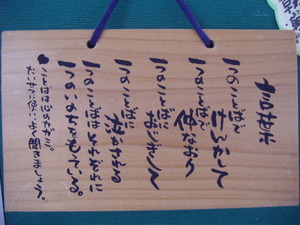 1つのことばで けんかして
1つのことばで なかなおり
1つのことばに おじぎして
1つのことばに 泣かされる
1つのことばは それぞれに
1つのいのちをもっている。
ことばは心のカガミ。
たいせつに使いよく聞きましょう。